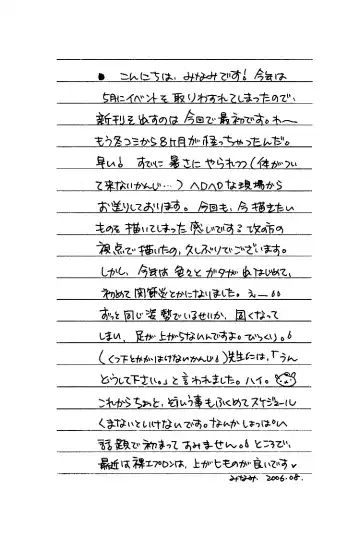 ● こんにちは、みなみです! 今年は
5月にイベントを取りわすれてしまったので、
新刊を出すのは今回で最初です。わ〜
もう冬コミから8ヶ月が経っちゃったんだ。
早い! すでに暑さにやられつつ(体がつい
て来ないかんじ…) ヘロヘロな現場から
お送りしております。今回も、今描きたい
ものを描いてしまった感じでする 攻の方の
視点で描いたの、久しぶりでございます。
しかし、今年は色々とガタが出はじめて、
初めて関節炎とかになりました。え〜
ずっと同じ姿勢でいるせいか、固くなって
しまい、足が上がらないんですよ。びっくり。
(くつ下とかがはけないかんじ) 先生には、「うん
どうして下さい。」と言われました。ハイ。
これからちゃんと、そういう事もふくめてスケジュール
くまないといけないです。なんかしょっぱい
話題で初まってすみません。ところで、
最近は裸エプロンは、上が七もものが良いです♥
みなみ. 2006.08.